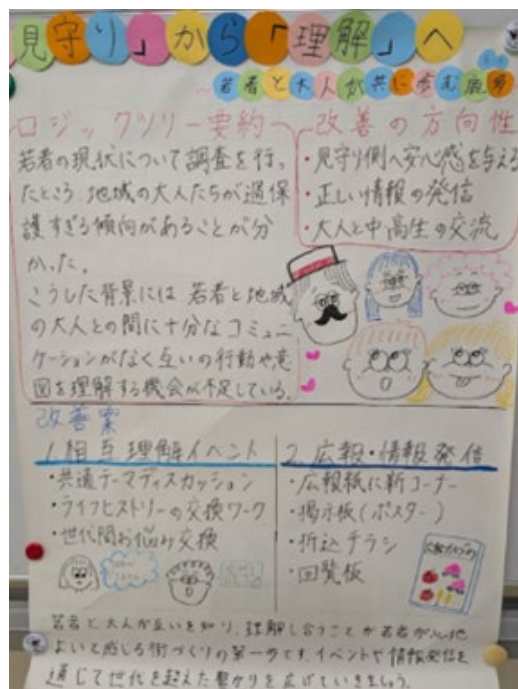 「見守り」から「理解」へ
若者と大人が共に歩む鹿野
ロジックツリー要約
若者の現状について調査を行っ
たところ、地域の大人たちが過保
護すぎる傾向があることが分
かった。
こうした背景には若者と地域
の大人との間に十分なコミュニ
ケーションがなく互いの行動や意
図を理解する機会が不足している。
改善の方向性
・見守り側へ安心感を与える
・正しい情報の発信
・大人と中高生の交流
改善案
1.相互理解イベント
・共通テーマディスカッション
・ライフヒストリーの交換ワーク
・世代間お悩み交換
2.広報・情報発信
・広報紙に新コーナー
・掲示板(ポスター)
・折込チラシ
・回覧板
若者と大人が互いを知り、理解し合うことが若者が心地
よいと感じる街づくりの第一歩です。イベントや情報発信を
通じて世代を超えた繋がりを広げていきましょう。